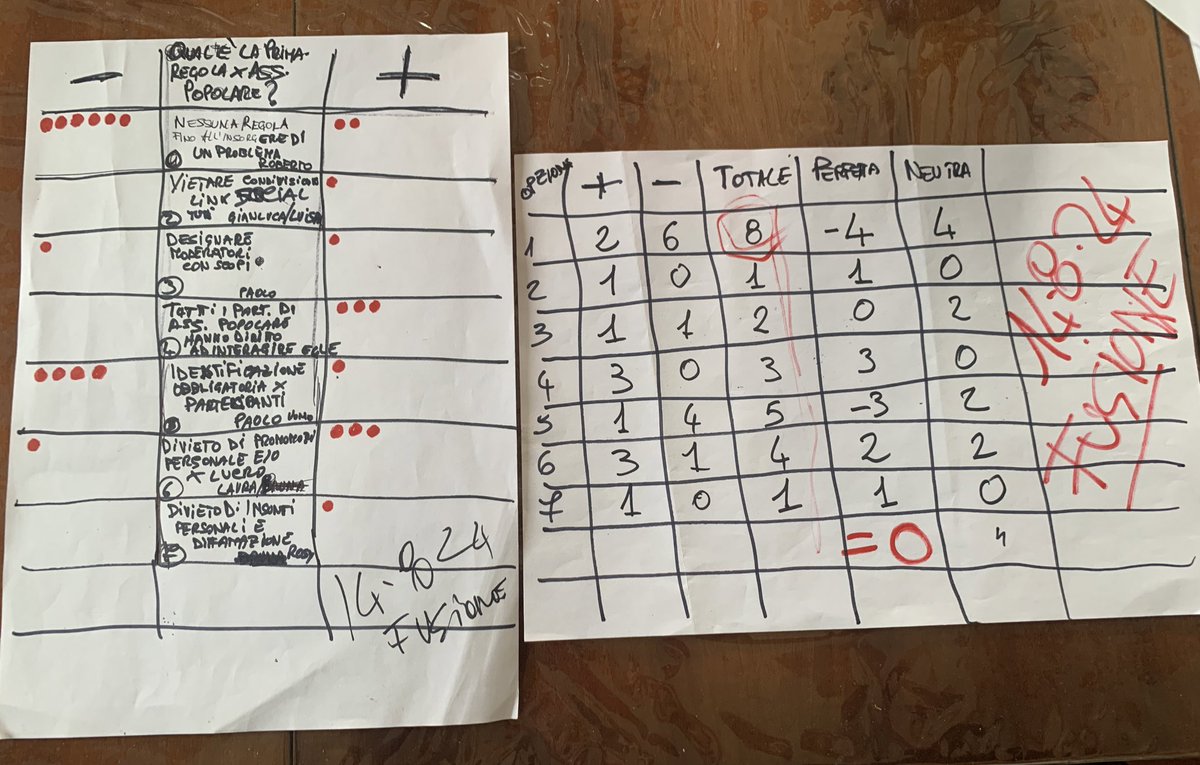 − QUAL'È LA PRIMA +
REGOLA X ASS.
POPOLARE?
NESSUNA REGOLA
FINO ALL'INSORGERE DI
1 UN PROBLEMA
ROBERTO
VIETARE CONDIVISIONE
LINK SOCIAL
2 GIANLUCA/LUISA
DESIGNARE
MODERATORI
CON SCOPI.
3 PAOLO
TUTTI I PART. DI
ASS. POPOLARE
HANNO DIRITTO
4 AD INTERAGIRE EGLE
IDENTIFICAZIONE
OBBLIGATORIA X
PARTECIPANTI
PAOLO
DIVIETO DI PROMOZIONE
PERSONALE E/O
X LUCRO
6 LAURA
DIVIETO DI INSULTI
PERSONALI E
DIFFAMAZIONE
7 ROSY
14-8-24
FUSIONE
OPZIONI + − TOTALE PERFETTA NEUTRA
1 2 6 8 -4 4
2 1 0 1 1 0
3 1 1 2 0 2
4 3 0 3 3 0
5 1 4 5 -3 2
6 3 1 4 2 2
7 1 0 1 1 0
=0
14.8.24
FUSIONE